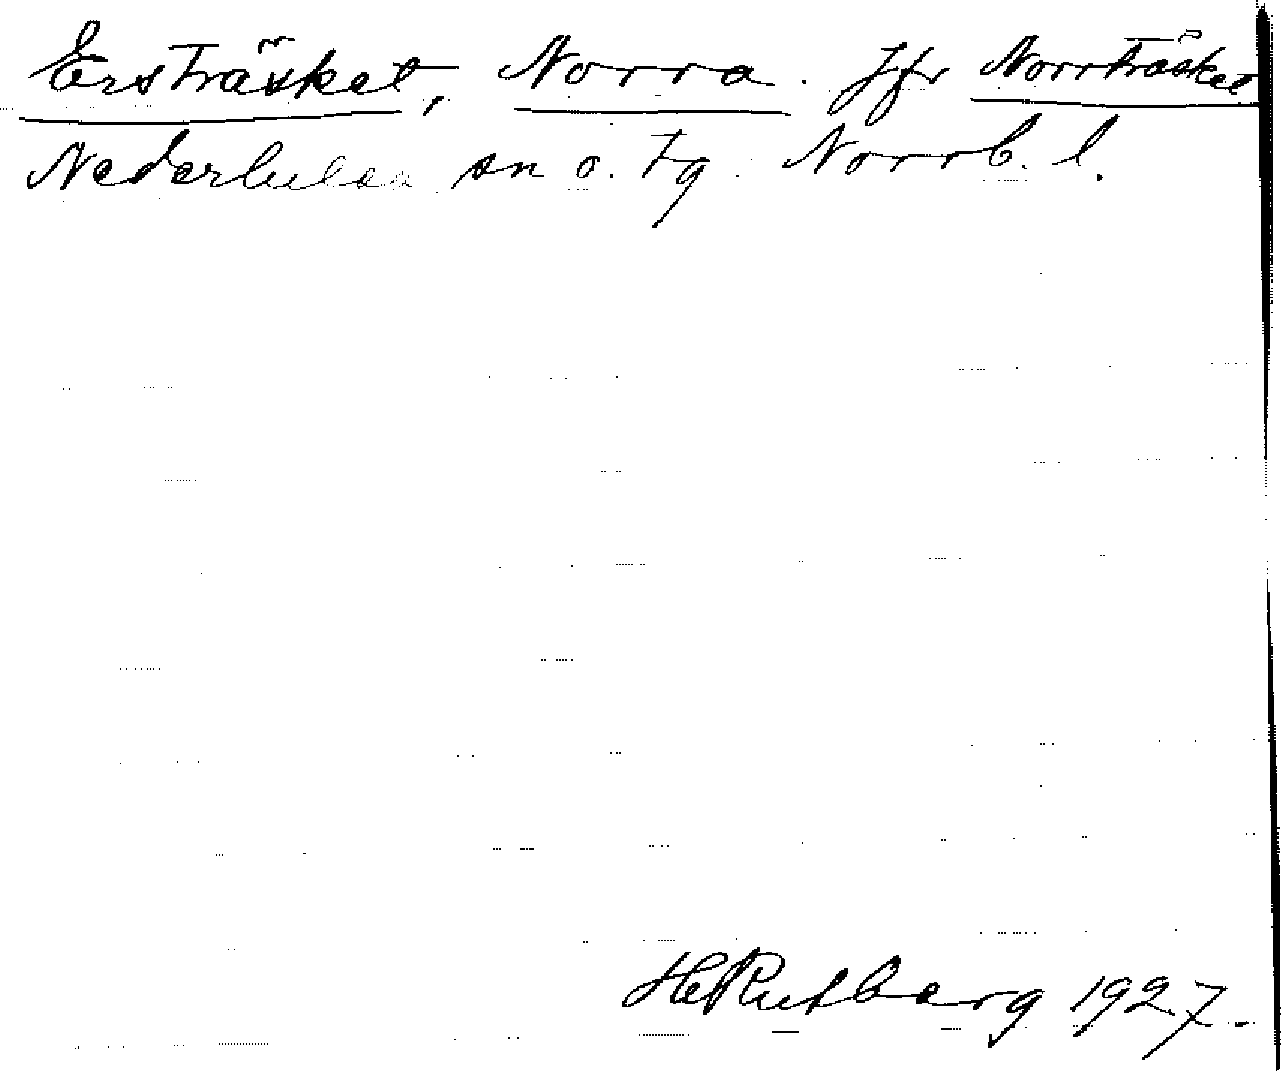 Ersträsket, Norra. Jfr Norrträsket
Nederluleå sn o. tg. Norrb. l.
H Rutberg 1927.